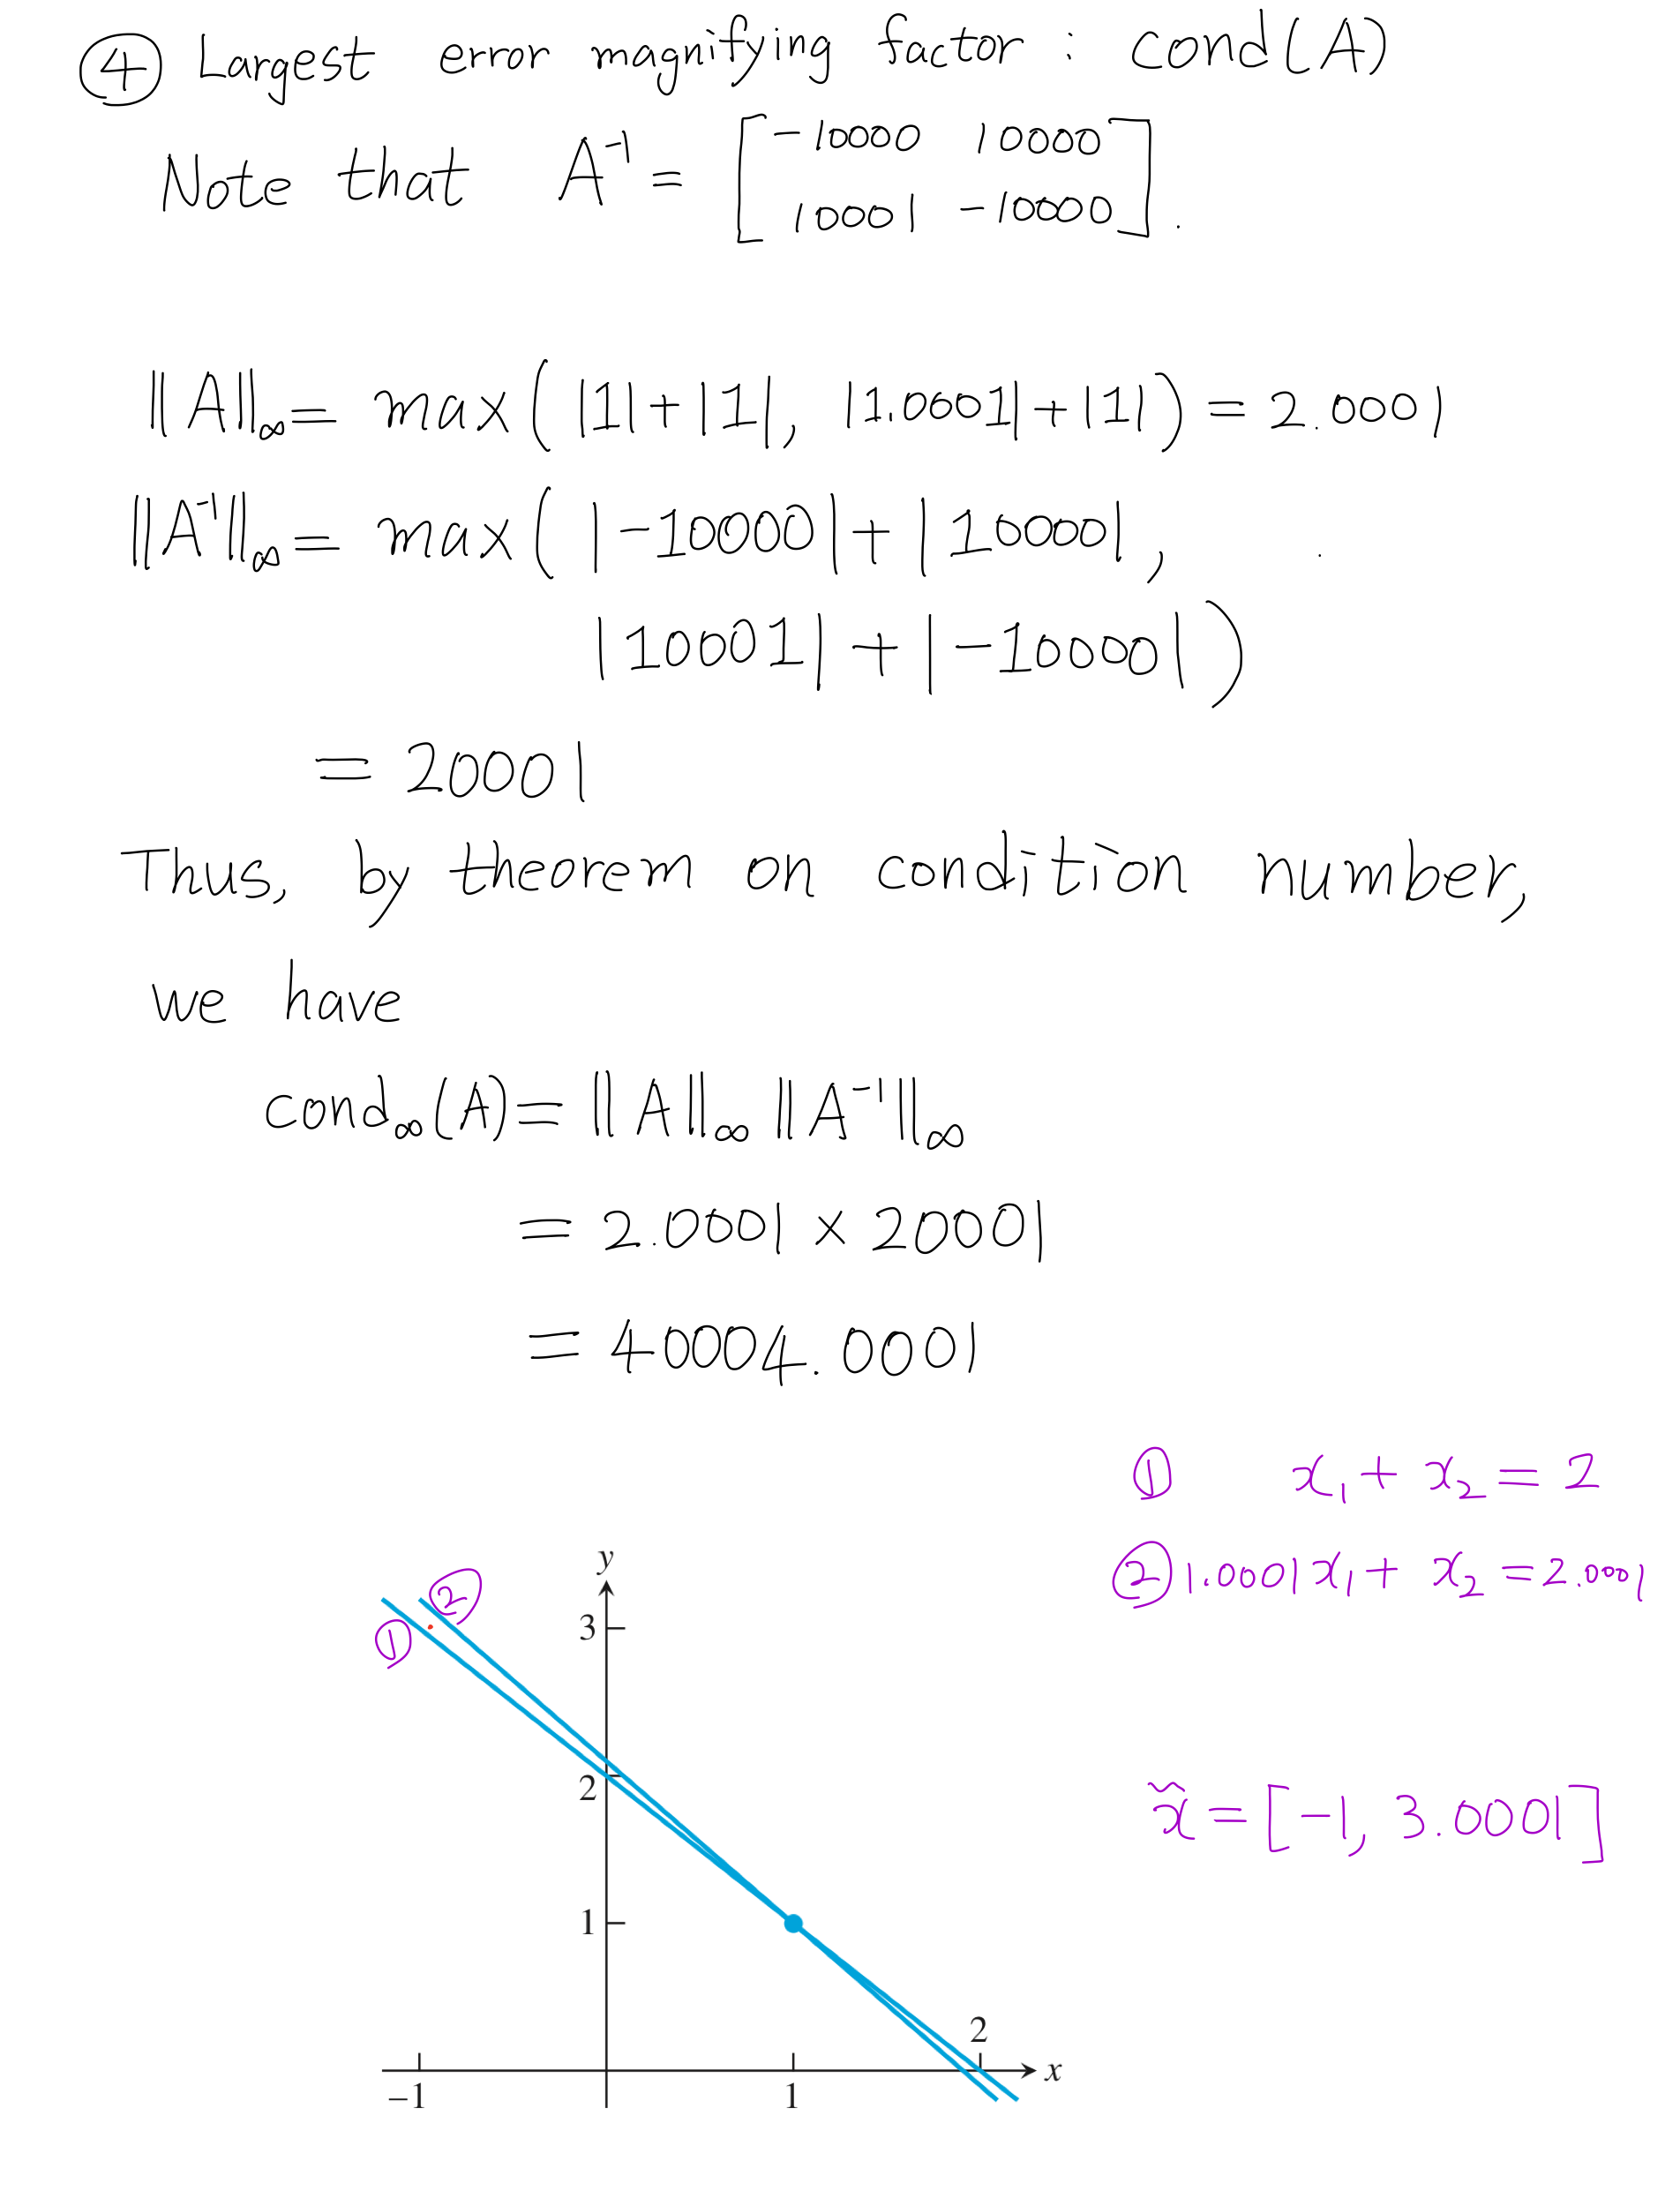 ④ Largest error magnifying factor : cond(A)
Note that A⁻¹ = [ -10000 10000
10001 -10000 ].
||A||∞ = max( |1|+|1|, |1.0001|+|1| ) = 2.0001
||A⁻¹||∞ = max( |-10000|+|10000|,
|10001|+|-10000| )
= 20001
Thus, by theorem on condition number,
we have
cond∞(A) = ||A||∞ ||A⁻¹||∞
= 2.0001 × 20001
= 40004.0001
① x₁ + x₂ = 2
② 1.0001x₁ + x₂ = 2.0001
y
②
①
3
2
x̃ = [-1, 3.0001]
1
2
x
-1
1